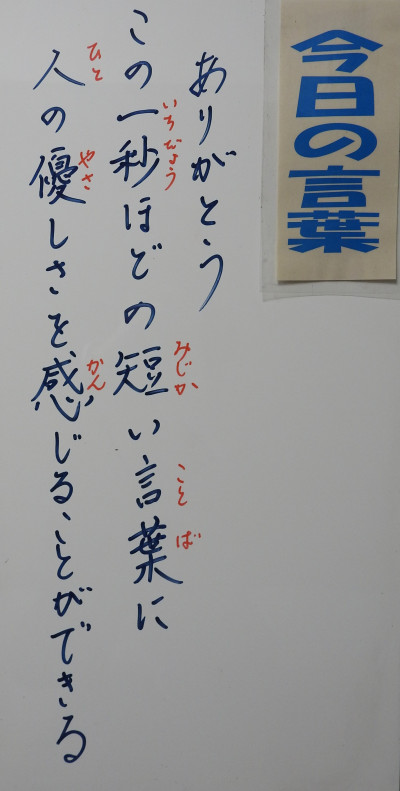 今日の言葉
ありがとう
この一秒ほどの短い言葉に
いちびょう
みじか
ことば
人の優しさを感じることができる
ひと
やさ
かん